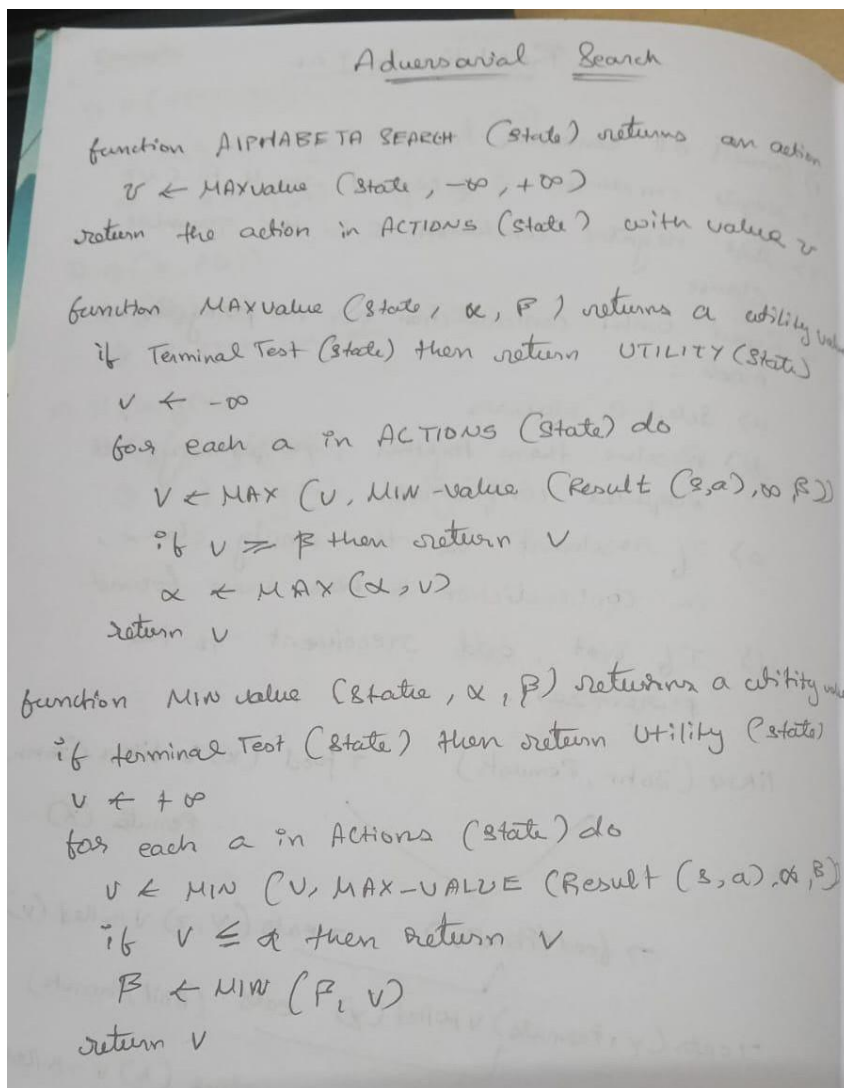 Adversarial Search
function AlPHABETA SEARCH (State) returns an action
v ← MAXvalue (State, -∞, +∞)
return the action in ACTIONS (State) with value v
function MAXvalue (State, α, β) returns a utility value
if Terminal Test (State) then return UTILITY (State)
v ← -∞
for each a in ACTIONS (State) do
V ← MAX (V, MIN-value (Result (s,a), ∞, β))
if v ≥ β then return v
α ← MAX (α, v)
return v
function MIN value (State, α, β) returns a utility value
if terminal Test (State) then return Utility (State)
v ← +∞
for each a in Actions (State) do
v ← MIN (V, MAX-VALUE (Result (s,a), α, β)
if v ≤ α then return v
β ← MIN (β, v)
return v